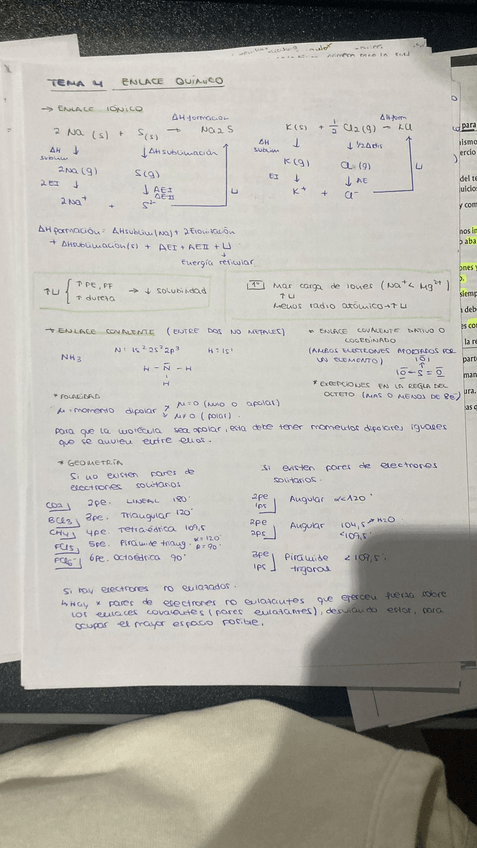 TEMA 4 ENLACE QUÍMICO
→ ENLACE IÓNICO
ΔHformación
2 Na (s) + S(s) → Na2S
ΔH sublim. ↓ ↓ΔHsublimación
2Na(g) S(g)
2EI ↓ ↓ AEI AEII U
2Na⁺ + S²⁻
ΔHform
K(s) + 1/2 Cl2(g) →
ΔH sublim ↓ ↓ 1/2 Δdis
K(g) Cl (g)
EI ↓ ↓ AE U
K⁺ + Cl⁻
ΔHformación = ΔHsublim(Na) + 2EIonización
+ ΔHsublimación(s) + AEI + AEII + U
Energía reticular
↑U { ↑ PE, PF ↑ dureza → ↓ solubilidad
1º Mar carga de iones (Na⁺ < Mg²⁺) ↑U
Menos radio atómico → ↑U
→ ENLACE COVALENTE (ENTRE DOS NO METALES)
NH3 N: 1s² 2s² 2p³ H = 1s¹
H - N - H
H
* ENLACE COVALENTE DATIVO O
COORDINADO
(AMBOS ELECTRONES APORTADOS POR
UN ELEMENTO)
O - S = O
* EXCEPCIONES EN LA REGLA DEL
OCTETO (MÁS O MENOS DE 8e⁻)
* POLARIDAD
μ = momento dipolar μ=0 (no o apolar)
μ≠0 (polar).
Para que la molécula sea apolar, esta debe tener momentos dipolares iguales
que se anulen entre ellos.
* GEOMETRÍA
Si no existen pares de
electrones solitarios
CO2 2pe. LINEAL 180º
BCl3 3pe. Triangular 120º
CH4 4pe Tetraédrica 109,5
PCl5 5pe. Pirámide triang. α=120º β=90º
6pe. Octaédrica 90º
Si existen pares de electrones
solitarios.
2pe 1ps ] Angular α<120º
2pe 2ps ] Angular 104,5 → H2O <109,5
3pe 1ps ] Pirámide trigonal <109,5
Si hay electrones no enlazados.
↳ Hay x pares de electrones no enlazantes que ejercen fuerza sobre
los enlaces covalentes (pares enlazantes), desviando estos, para
ocupar el mayor espacio posible.